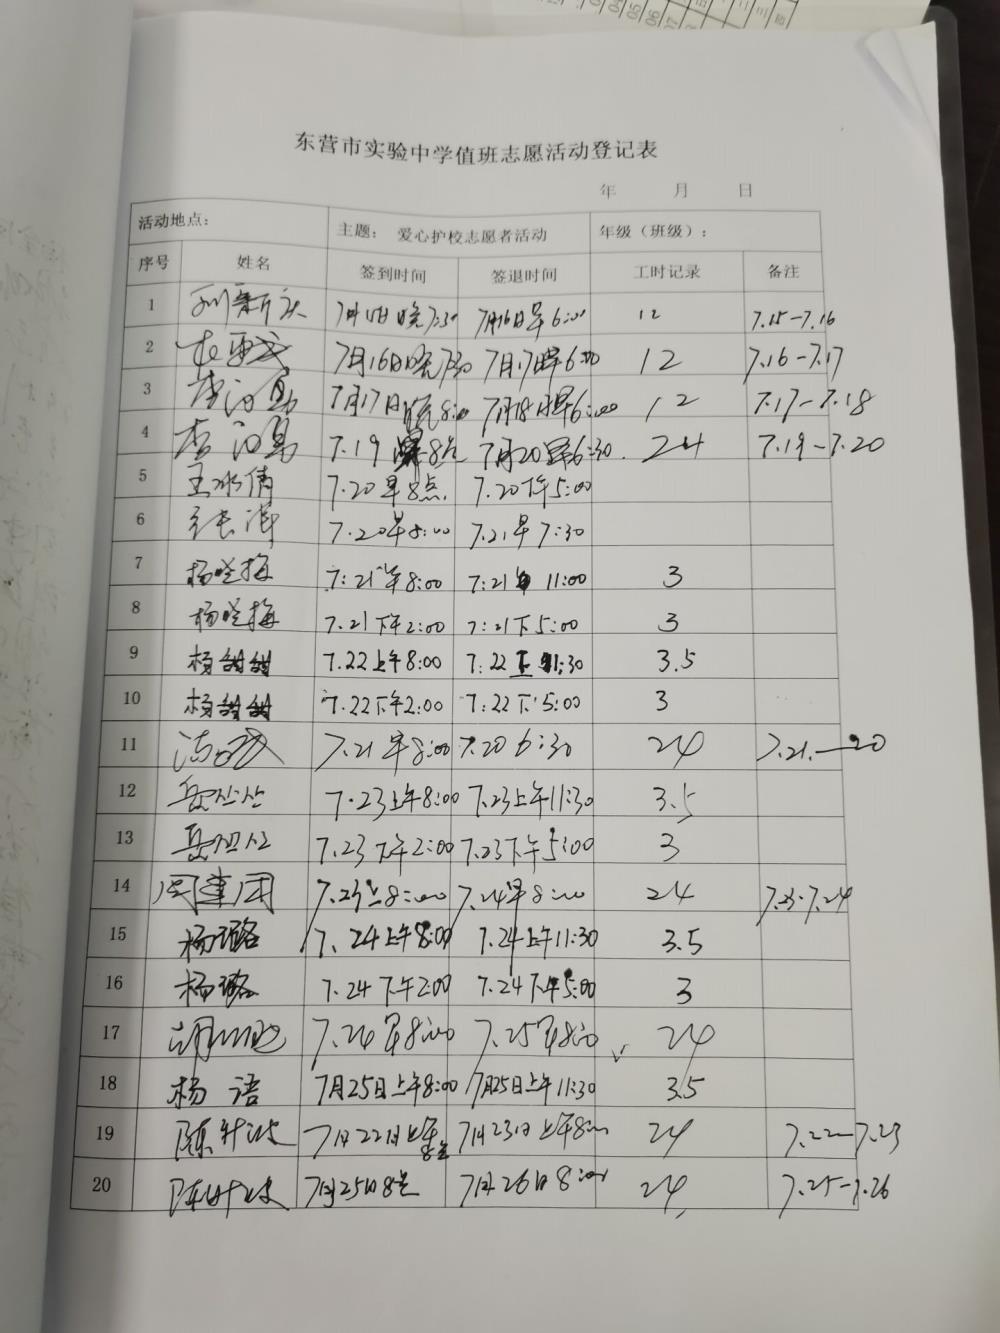 东营市实验中学值班志愿活动登记表
年 月 日
活动地点： 主题： 爱心护校志愿者活动 年级（班级）：
序号 姓名 签到时间 签退时间 工时记录 备注
1 7月15日晚7:30 7月16日早6:00 12 7.15-7.16
2 7月16日晚7:30 7月17日早6:00 12 7.16-7.17
3 7月17日晚8:00 7月18日早6:00 12 7.17-7.18
4 7.19 早8点 7月20早6:30. 24 7.19-7.20
5 王冰倩 7.20早8点 7.20下午5:00
6 7.20早8:00 7.21早7:30
7 杨晓梅 7:21上午8:00 7:21午 11:00 3
8 杨晓梅 7.21下午2:00 7:21下5:00 3
9 杨甜甜 7.22上午8:00 7:22上 11:30 3.5
10 杨甜甜 7.22下午2:00 7:22下5:00 3
11 7.21早8:00 7.20 6:30 24 7.21.—20
12 岳 7.23上午8:00 7.23上午11:30 3.5
13 岳 7.23下午2:00 7.23下午5:00 3
14 周建国 7.23上8:00 7.24早8:00 24 7.23-7.24
15 杨璐 7.24上午8:00 7.24上午11:30 3.5
16 杨璐 7.24下午2:00 7.24下午5:00 3
17 7.24早8:00 7.25早8:00 24
18 杨语 7月25日上午8:00 7月25日上午11:30 3.5
19 陈 7月22日上午8点 7月23日上午8:00 24 7.22-7.23
20 陈 7月25日8点 7月26日8:00 24 7.25-7.26